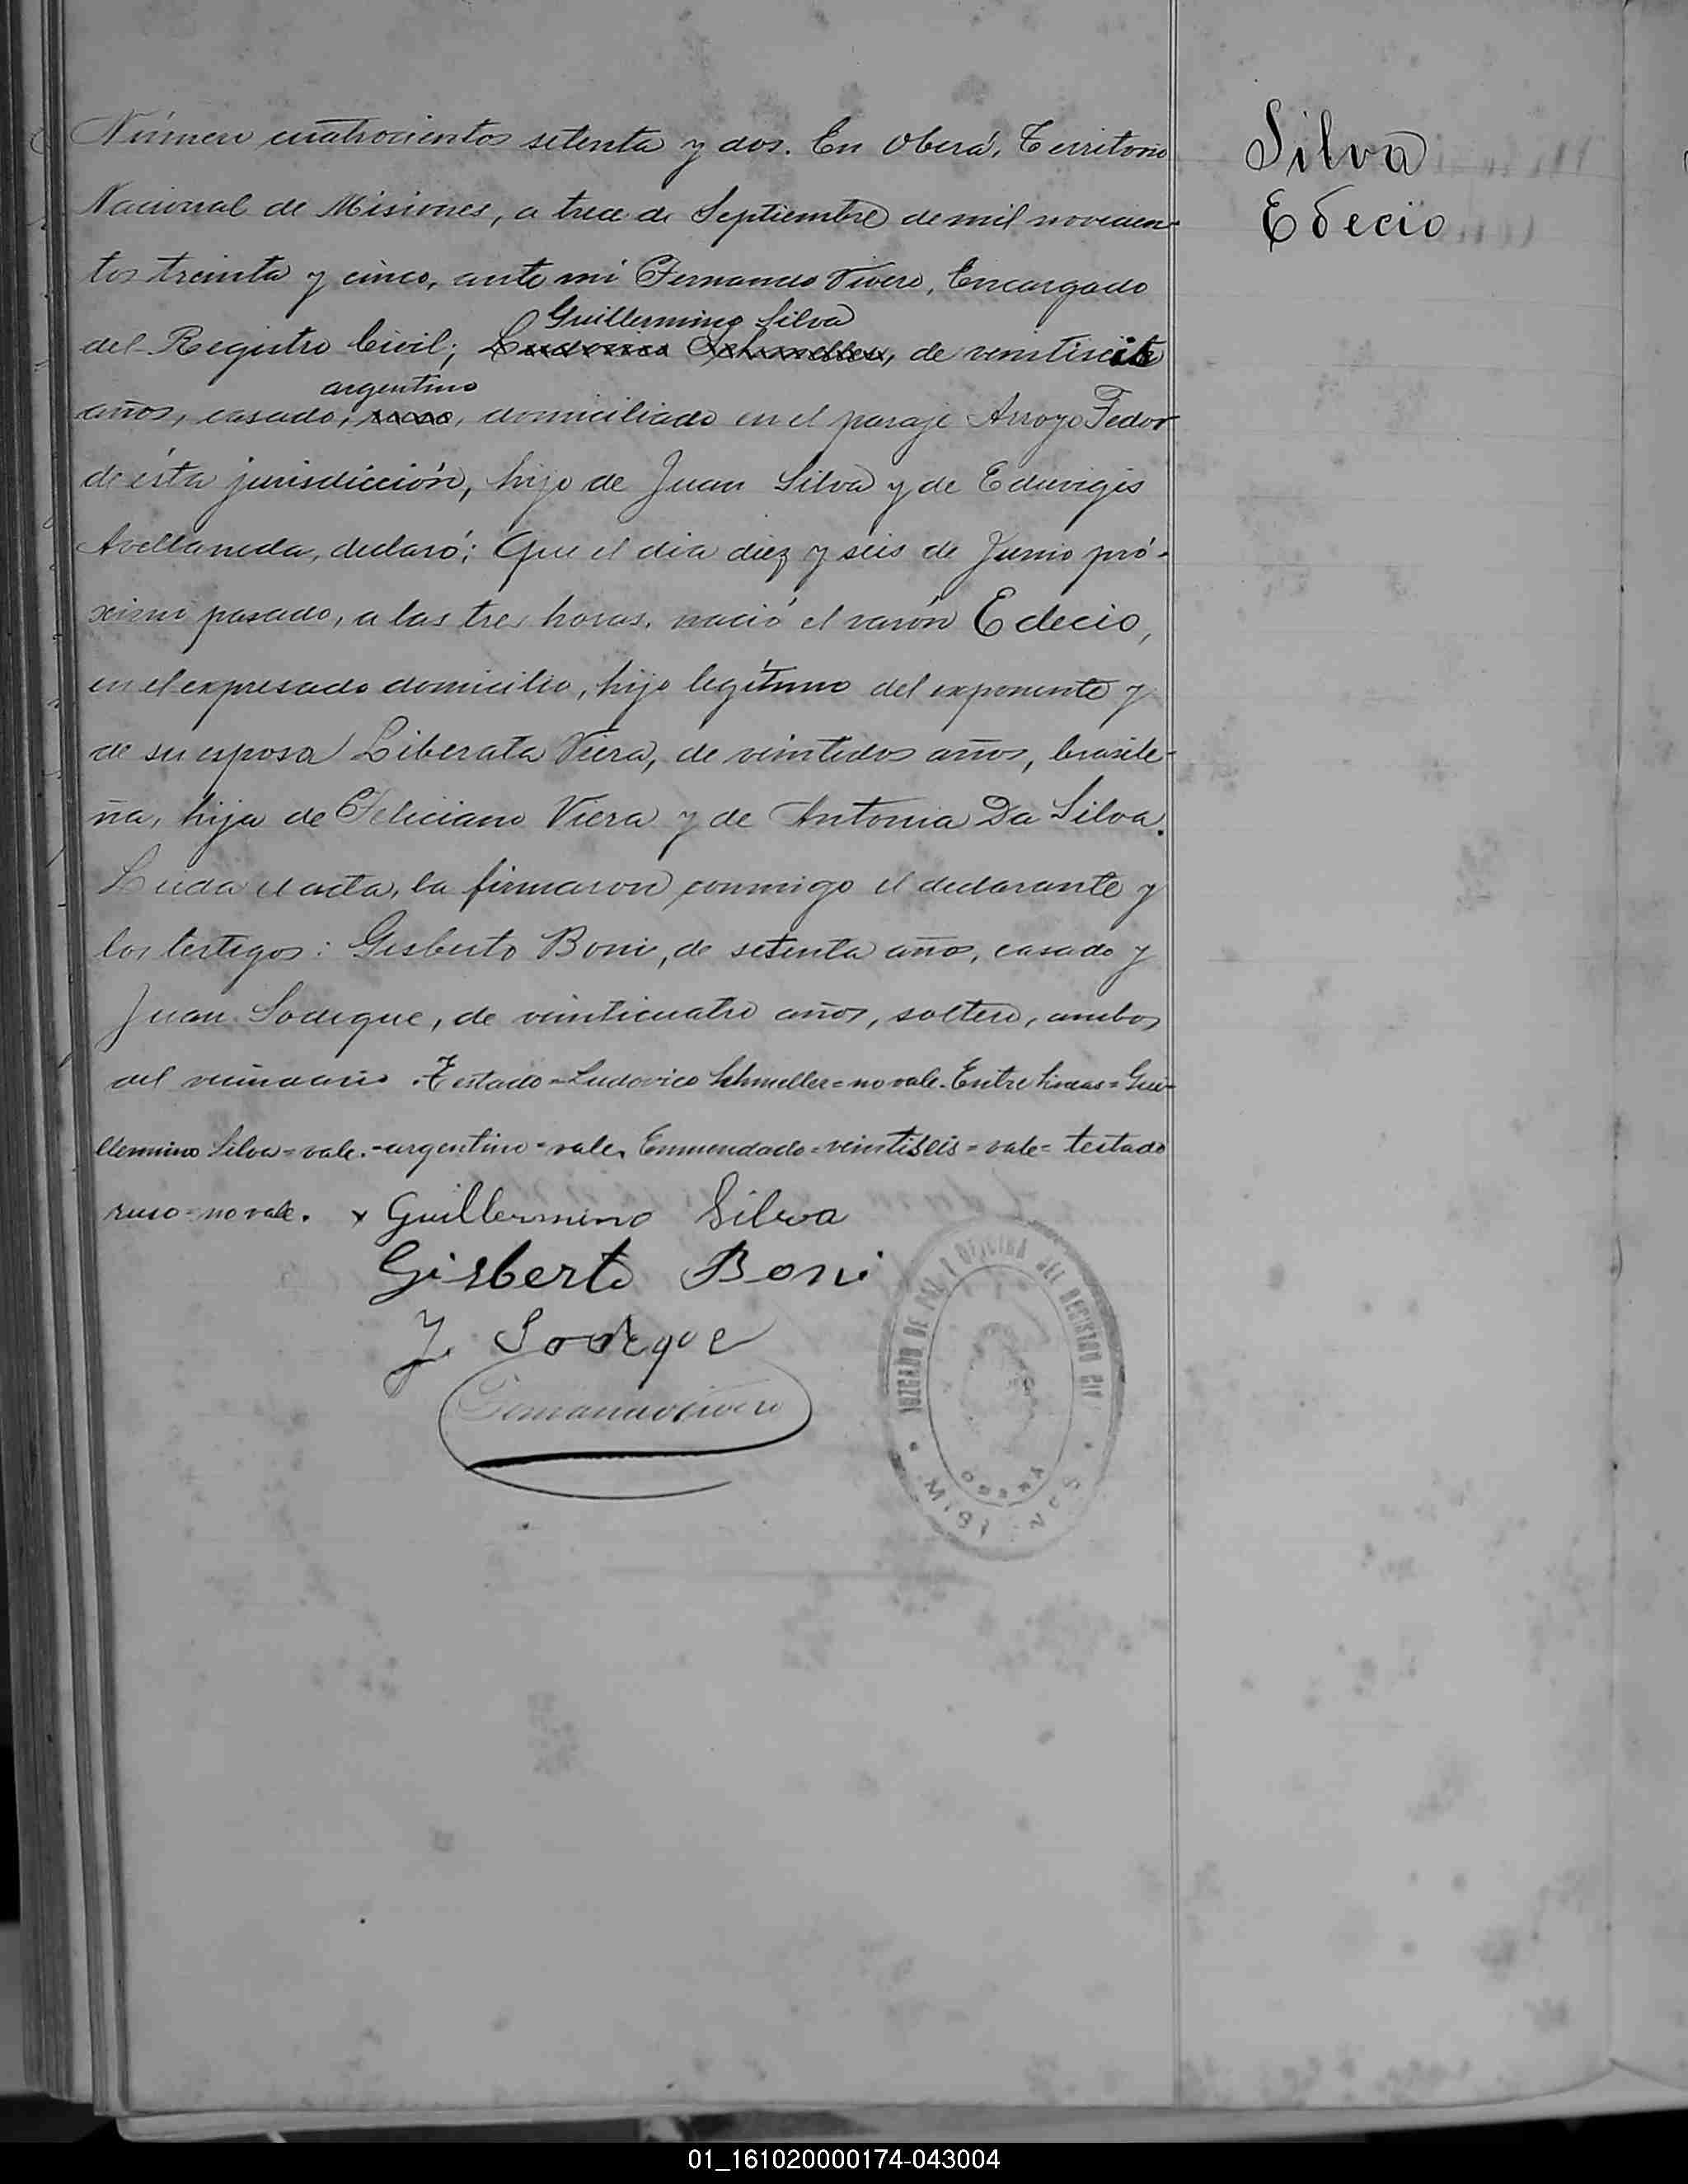 Silva
Edecio
Número cuatrocientos setenta y dos. En Oberá, Territorio
Nacional de Misiones, a trece de Septiembre de mil novecien-
tos treinta y cinco, ante mi Fernando Vivero, Encargado
Guillermino Silva
del Registro Civil; Ludovico Schmeller, de veintiseis
argentino
años, casado, ruso, domiciliado en el paraje Arroyo Fedor
de ésta jurisdicción, hijo de Juan Silva y de Eduvigis
Avellaneda, declaró: Que el día diez y seis de Junio pró-
ximo pasado, a las tres horas, nació el varón Edecio,
en el expresado domicilio, hijo legítimo del exponente y
de su esposa Liberata Viera, de veintidos años, brasile-
ña, hija de Feliciano Viera y de Antonia Da Silva.
Leída el acta, la firmaron conmigo el declarante y
los testigos: Gisberto Boni, de setenta años, casado y
Juan Sodeque, de veinticuatro años, soltero, ambos
del vecindario. Testado=Ludovico Schmeller=no vale. Entre lineas=Gui-
llermino Silva=vale.=argentino=vale. Enmendado=veintiseis=vale= testado
ruso=no vale. x Guillermino Silva
Gisberto Boni
J. Sodeque
Fernando Vivero
JUZGADO DE PAZ Y OFICINA DEL REGISTRO CIVIL
OBERÁ
MISIONES
01_161020000174-043004